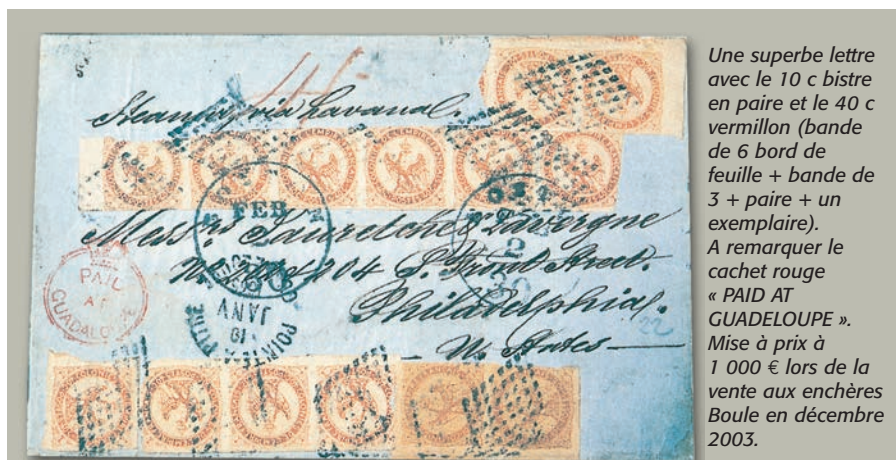 Steamer, via Havana.
FEB
2
Mess.rs Lauretche & Lavergne
PAID
AT
GUADALOUPE
204 S. Front Street.
Philadelphia.
19
JANV
POINTE A PITRE
22
Une superbe lettre
avec le 10 c bistre
en paire et le 40 c
vermillon (bande
de 6 bord de
feuille + bande de
3 + paire + un
exemplaire).
A remarquer le
cachet rouge
« PAID AT
GUADELOUPE ».
Mise à prix à
1 000 € lors de la
vente aux enchères
Boule en décembre
2003.